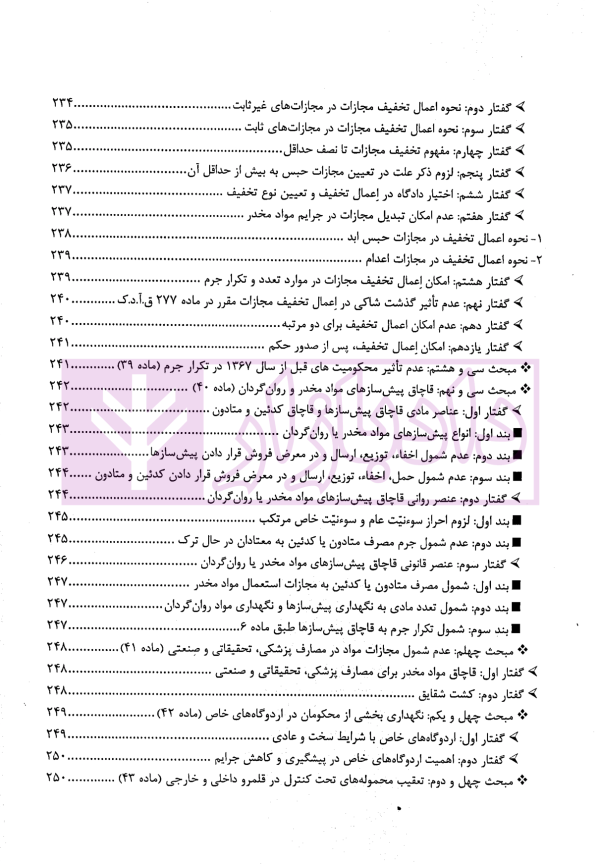 ➢ گفتار دوم: نحوه اعمال تخفیف مجازات در مجازات‌های غیرثابت..........۲۳۴
➢ گفتار سوم: نحوه اعمال تخفیف مجازات در مجازات‌های ثابت..........۲۳۵
➢ گفتار چهارم: مفهوم تخفیف مجازات تا نصف حداقل..........۲۳۵
➢ گفتار پنجم: لزوم ذکر علت در تعیین مجازات حبس به بیش از حداقل آن..........۲۳۶
➢ گفتار ششم: اختیار دادگاه در اِعمال تخفیف و تعیین نوع تخفیف..........۲۳۷
➢ گفتار هفتم: عدم امکان تبدیل مجازات در جرایم مواد مخدر..........۲۳۷
۱- نحوه اعمال تخفیف در مجازات حبس ابد..........۲۳۸
۲- نحوه اعمال تخفیف در مجازات اعدام..........۲۳۹
➢ گفتار هشتم: امکان اِعمال تخفیف مجازات در موارد تعدد و تکرار جرم..........۲۳۹
➢ گفتار نهم: عدم تأثیر گذشت شاکی در اِعمال تخفیف مجازات مقرر در ماده ۲۷۷ ق.آ.د.ک..........۲۴۰
➢ گفتار دهم: عدم امکان اعمال تخفیف برای دو مرتبه..........۲۴۰
➢ گفتار یازدهم: امکان اِعمال تخفیف، پس از صدور حکم..........۲۴۱
❖ مبحث سی و هشتم: عدم تأثیر محکومیت های قبل از سال ۱۳۶۷ در تکرار جرم (ماده ۳۹)..........۲۴۱
❖ مبحث سی و نهم: قاچاق پیش‌سازهای مواد مخدر و روان‌گردان (ماده ۴۰)..........۲۴۲
➢ گفتار اول: عناصر مادی قاچاق پیش‌سازها و قاچاق کدئین و متادون..........۲۴۲
■ بند اول: انواع پیش‌سازهای مواد مخدر یا روان‌گردان..........۲۴۳
■ بند دوم: عدم شمول اخفاء، توزیع، ارسال و در معرض فروش قرار دادن پیش‌سازها..........۲۴۳
■ بند سوم: عدم شمول حمل، اخفاء، توزیع، ارسال و در معرض فروش قرار دادن کدئین و متادون..........۲۴۴
➢ گفتار دوم: عنصر روانی قاچاق پیش‌سازهای مواد مخدر یا روان‌گردان..........۲۴۴
■ بند اول: لزوم احراز سوءنیّت عام و سوءنیّت خاص مرتکب..........۲۴۵
■ بند دوم: عدم شمول جرم مصرف متادون یا کدئین به معتادان در حال ترک..........۲۴۵
➢ گفتار سوم: عنصر قانونی قاچاق پیش‌سازهای مواد مخدر یا روان‌گردان..........۲۴۶
■ بند اول: شمول مصرف متادون یا کدئین به مجازات استعمال مواد مخدر..........۲۴۷
■ بند دوم: شمول تعدد مادی به نگهداری پیش‌سازها و نگهداری مواد روان‌گردان..........۲۴۷
■ بند سوم: شمول تکرار جرم به قاچاق پیش‌سازها طبق ماده ۶..........۲۴۷
❖ مبحث چهلم: عدم شمول مجازات مواد در مصارف پزشکی، تحقیقاتی و صنعتی (ماده ۴۱)..........۲۴۸
➢ گفتار اول: قاچاق مواد مخدر برای مصارف پزشکی، تحقیقاتی و صنعتی..........۲۴۸
➢ گفتار دوم: کشت شقایق..........۲۴۸
❖ مبحث چهل و یکم: نگهداری بخشی از محکومان در اردوگاه‌های خاص (ماده ۴۲)..........۲۴۹
➢ گفتار اول: اردوگاه‌های خاص با شرایط سخت و عادی..........۲۴۹
➢ گفتار دوم: اهمیت اردوگاه‌های خاص در پیشگیری و کاهش جرایم..........۲۵۰
❖ مبحث چهل و دوم: تعقیب محموله‌های تحت کنترل در قلمرو داخلی و خارجی (ماده ۴۳)..........۲۵۰